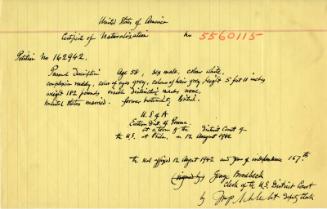 United States of America
Certificate of Naturalization No 5560115
Petition No 162942.
Personal Description Age 58, sex male, color white,
complexion ruddy, color of eyes grey, color of hair grey, height 5 feet 11 inches
weight 182 pounds, visible distinctive marks none,
Marital status married. former nationality British.
U S of A
Eastern Dist. of Penna.
at a term of the District Court of
the U.S. at Phila. on 12 August 1942
the seal affixed 12 August 1942 and year of independence 167th
(signed) George Brodbeck
Clerk of the U.S. District Court
by Deputy Clerk